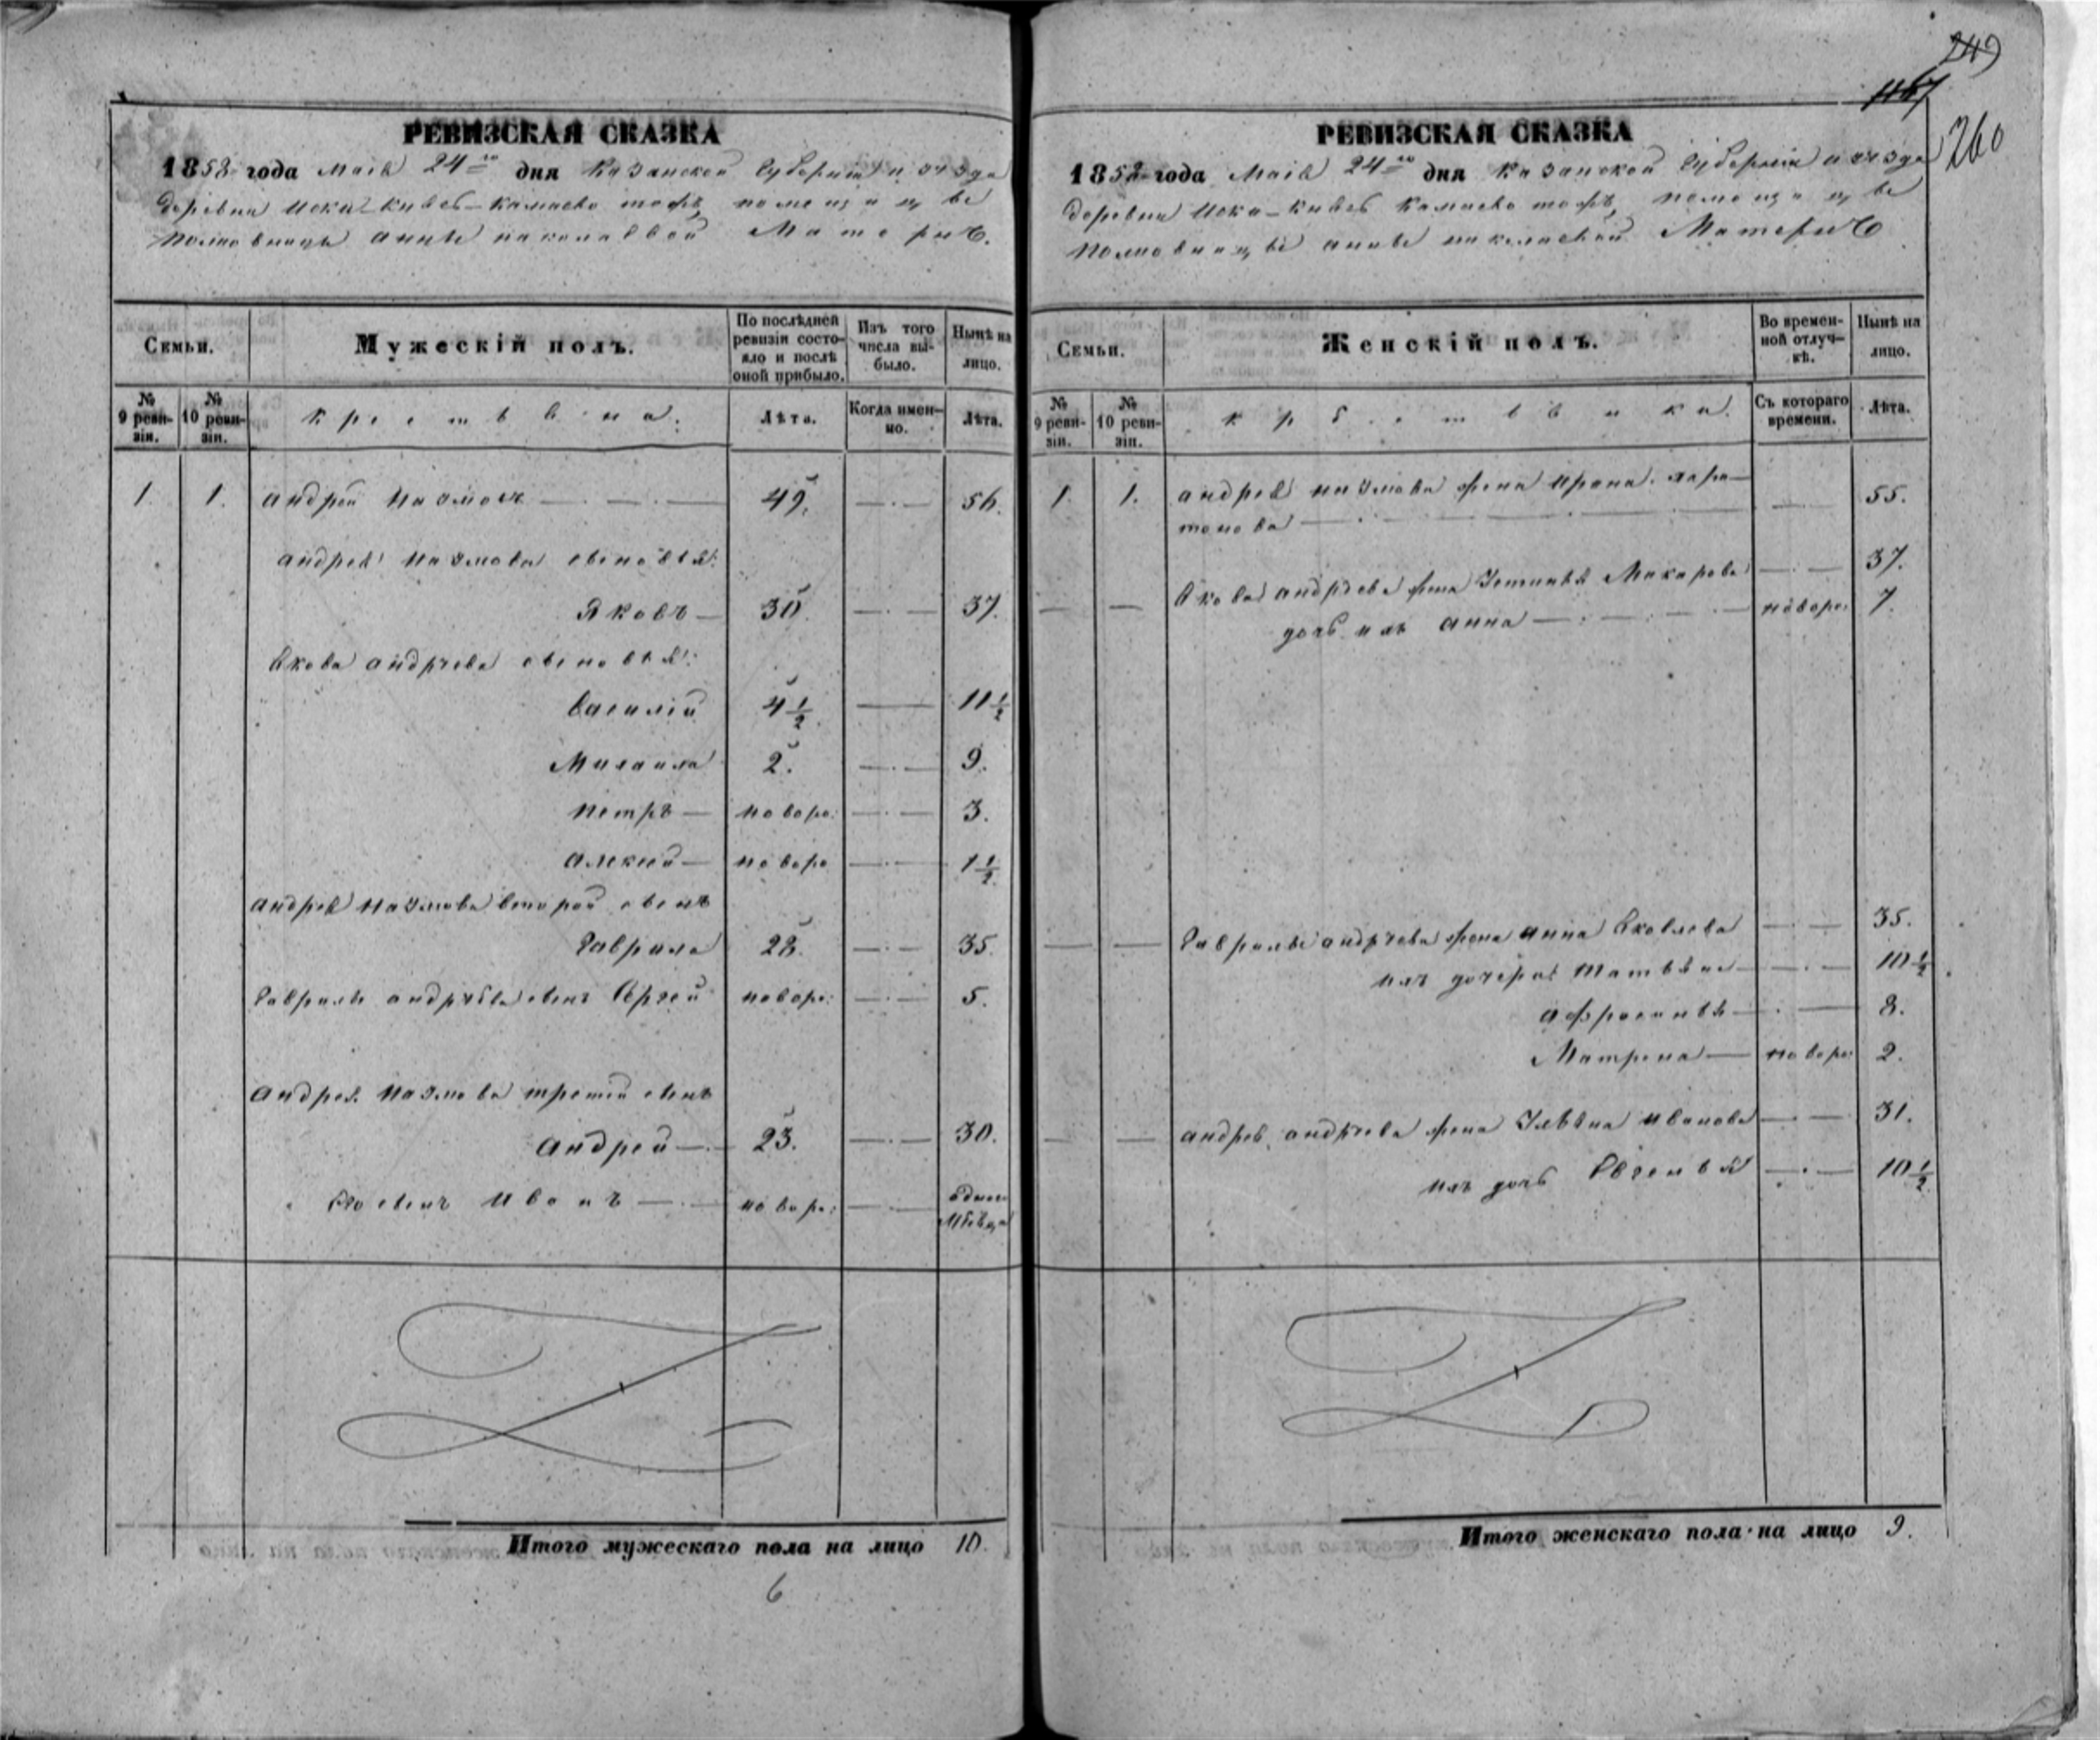 РЕВИЗСКАЯ СКАЗКА
1858 года Маія 24го дня Казанской Губерніи и уѣзда
деревни тожъ, помещицы
Анны Николаевой
Семьи.
Мужескій полъ.
По послѣдней ревизіи состояло и послѣ оной прибыло.
Изъ того числа выбыло.
Нынѣ на лицо.
№ 9 ревизіи.
№ 10 ревизіи.
Лѣта.
Когда именно.
Лѣта.
1. 1. Андрей 49. 56.
Андрея сыновья:
Яковъ 30. 37.
Якова Андреева сыновья:
Василій 4 1/2 11 1/2
Михайла 2. 9.
Петръ новоро: 3.
Алексей новоро 1 1/2
Андрея второй сынъ
Гаврила 28. 35.
Гаврилы Андреева сынъ Сергей новоро: 5.
Андрея третій сынъ
Андрей 23. 30.
Его сынъ Иванъ новоро: одного месяца
Итого мужескаго пола на лицо 10.
6
249
260
РЕВИЗСКАЯ СКАЗКА
1858 года Маія 24го дня Казанской Губерніи и уѣзда
деревни тожъ, помещицы
Анны Николаевой
Семьи.
Женскій полъ.
Во временной отлучкѣ.
Нынѣ на лицо.
№ 9 ревизіи.
№ 10 ревизіи.
Съ котораго времени.
Лѣта.
1. 1. Андрея жена Ирина Харитонова 55.
Якова Андреева жена Устинья Макарова 37.
дочь ихъ Анна новоро: 7.
Гаврилы Андреева жена Анна Яковлева 35.
ихъ дочери: Татьяна 10 1/2
Афросинья 8.
Матрена новоро: 2.
Андрея Андреева жена Ульяна Иванова 31.
ихъ дочь Евгенья 10 1/2
Итого женскаго пола на лицо 9.